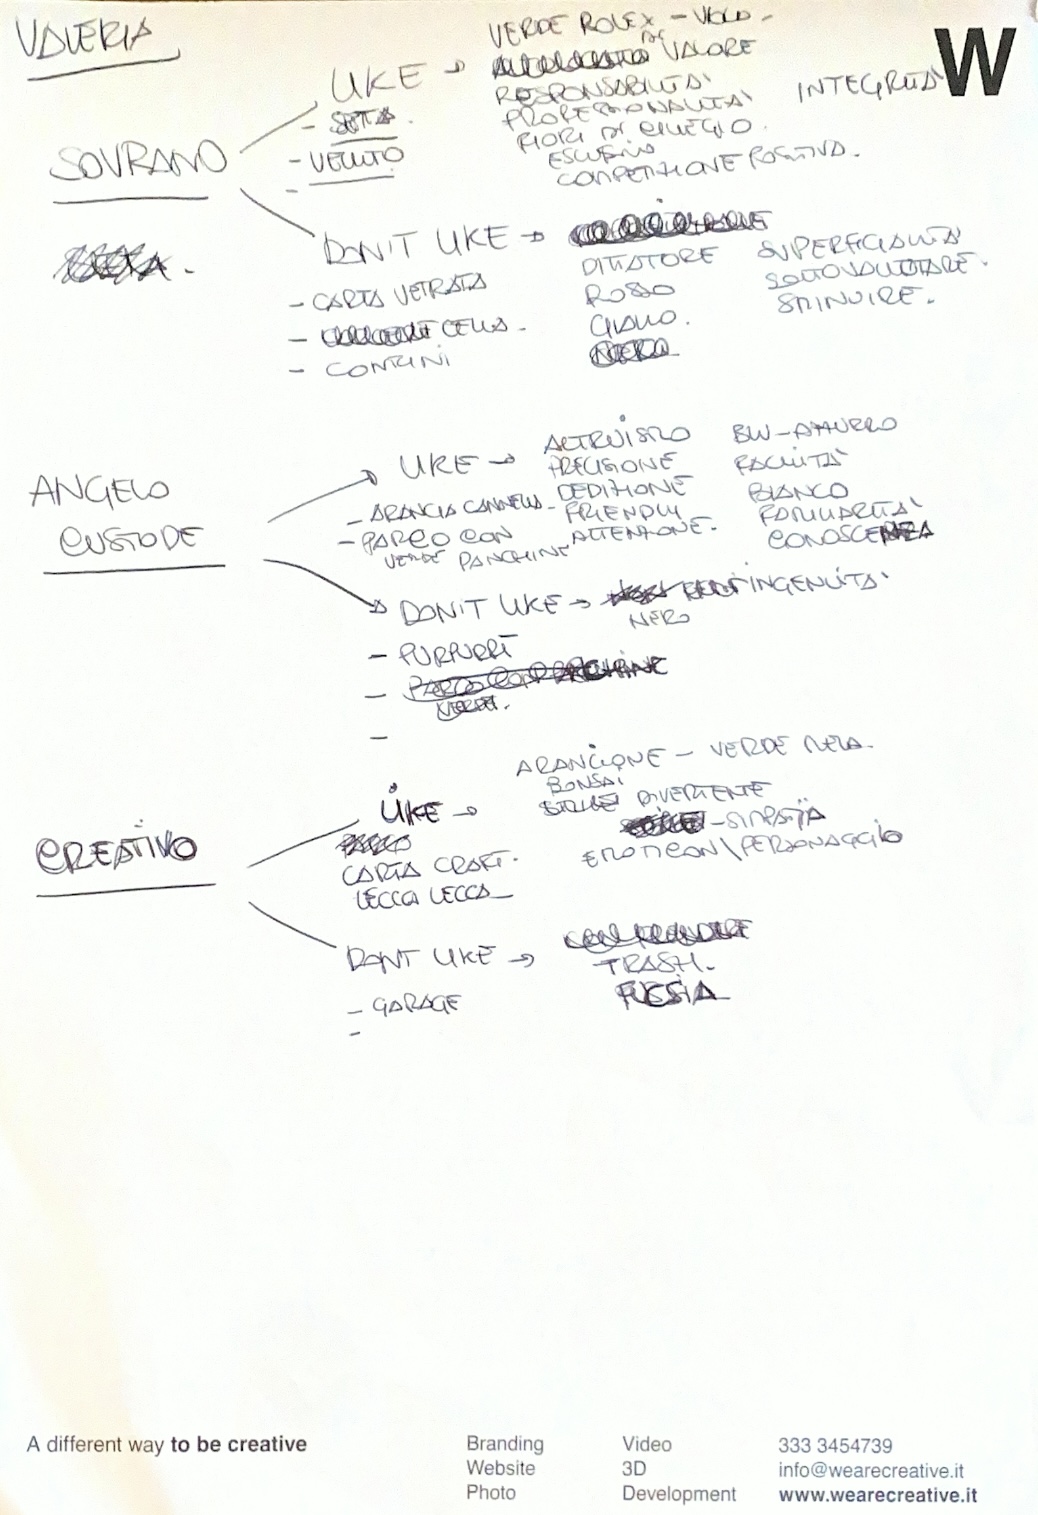 VALERIA
W
VERDE ROLEX - VIOLA -
LIKE → DI VALORE
RESPONSABILITÀ
INTEGRITÀ
- SETA.
PROFESSIONALITÀ
SOVRANO
- VELLUTO
FIORI DI CILIEGIO.
ESCLUSIVO
-
COMPETIZIONE POSITIVA.
DON'T LIKE →
DITTATORE SUPERFICIALITÀ
- CARTA VETRATA ROSSO SOTTOVALUTARE.
- CELLA. GIALLO. SMINUIRE.
- CONFINI
ALTRUISMO BLU-AZZURRO
LIKE → PRECISIONE FACILITÀ
ANGELO
- ARANCIA CANNELLA - DEDIZIONE BIANCO
CUSTODE
- PARCO CON FRIENDLY FAMILIARITÀ
VERDE PANCHINE ATTENZIONE. CONOSCENZA
DON'T LIKE → INGENUITÀ
NERO
- PURPURRÌ
-
-
ARANCIONE - VERDE MELA.
BONSAI
LIKE → DIVERTENTE
- SIMPATIA
CREATIVO
CARTA CRAFT. EMOTICON\PERSONAGGIO
LECCA LECCA
DONT LIKE →
TRASH.
- GARAGE FUCSIA
-
A different way to be creative
Branding Video 333 3454739
Website 3D info@wearecreative.it
Photo Development www.wearecreative.it